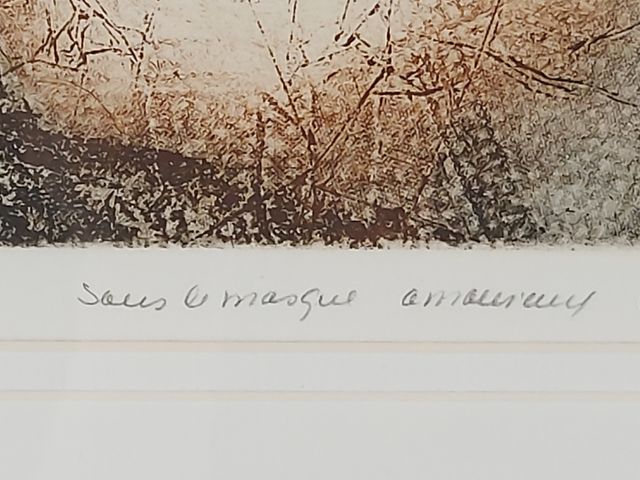 Sous le masque amoureux